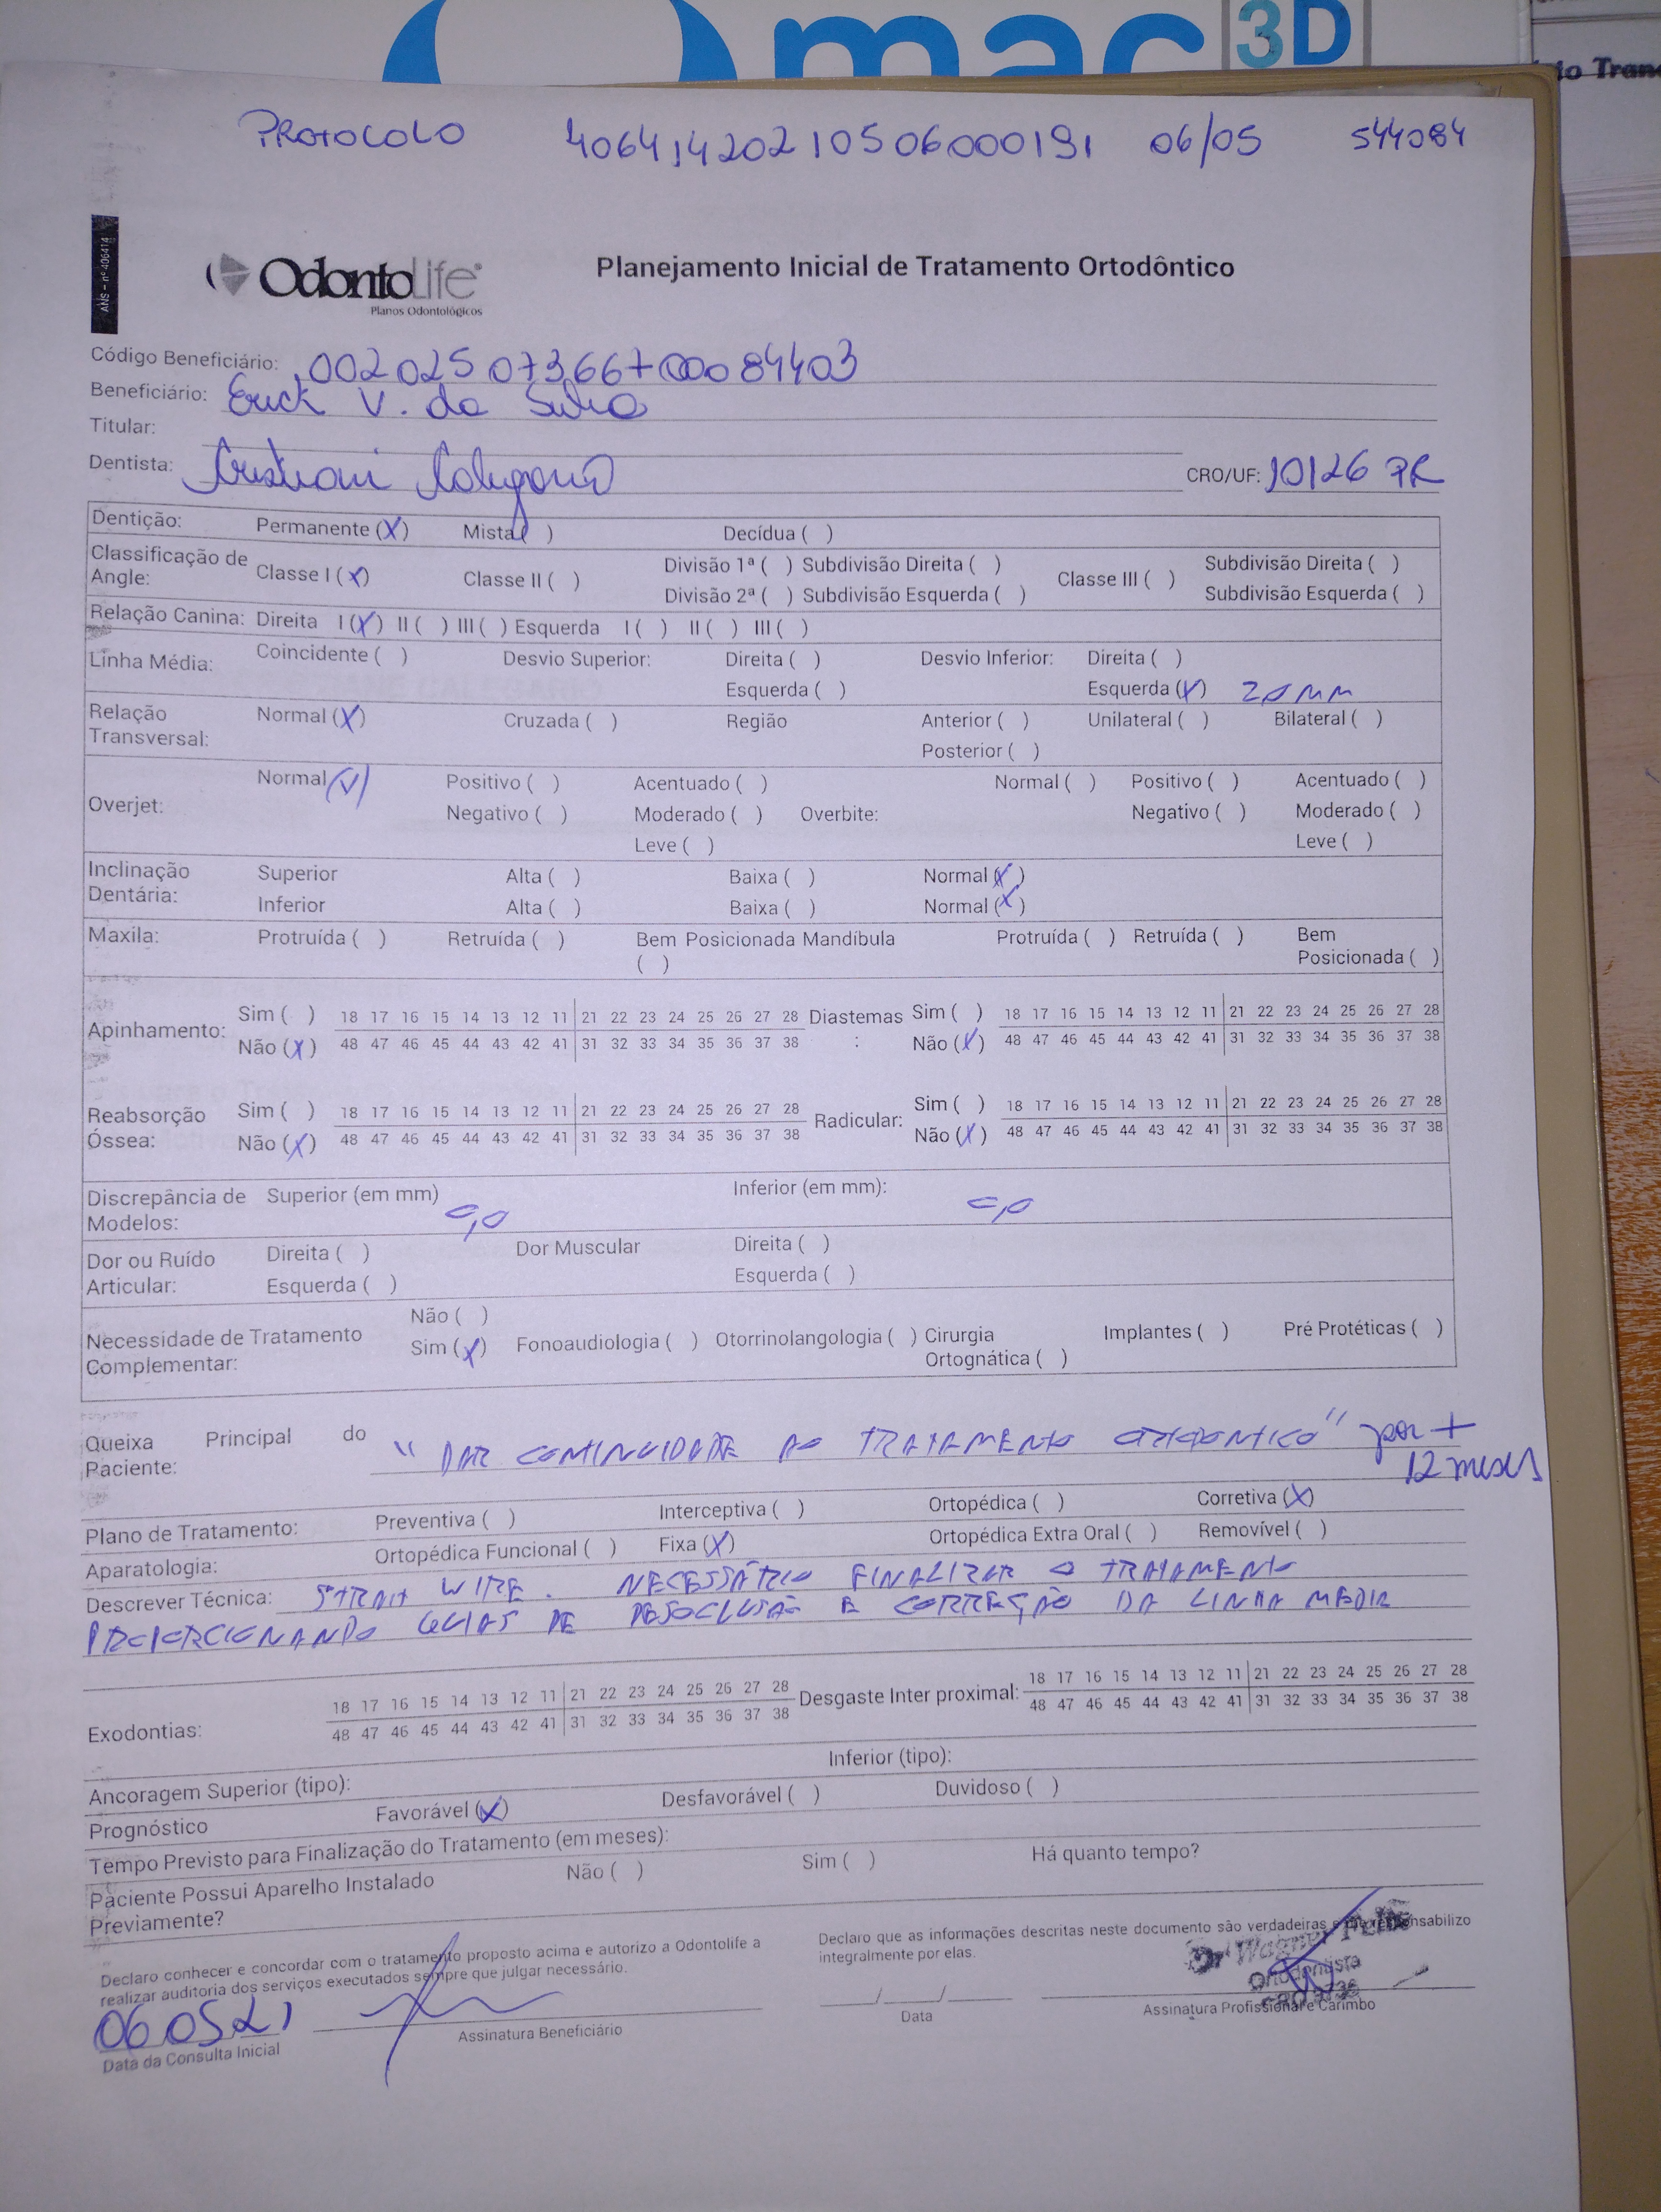 mac 3D
to Tran
PROTOCOLO 40641420210506000191 06/05 544084
ANS - nº 406414
OdontoLife
Planos Odontológicos
Planejamento Inicial de Tratamento Ortodôntico
Código Beneficiário: 00202507366700084403
Beneficiário: Erick V. da Silva
Titular:
Dentista: CRO/UF: 10126 PR
Dentição: Permanente (X) Mista ( ) Decídua ( )
Classificação de Angle: Classe I (X) Classe II ( ) Divisão 1ª ( ) Subdivisão Direita ( ) Classe III ( ) Subdivisão Direita ( )
Divisão 2ª ( ) Subdivisão Esquerda ( ) Subdivisão Esquerda ( )
Relação Canina: Direita I (X) II ( ) III ( ) Esquerda I ( ) II ( ) III ( )
Linha Média: Coincidente ( ) Desvio Superior: Direita ( ) Desvio Inferior: Direita ( )
Esquerda ( ) Esquerda (X) 2,0 MM
Relação Transversal: Normal (X) Cruzada ( ) Região Anterior ( ) Unilateral ( ) Bilateral ( )
Posterior ( )
Overjet: Normal (X) Positivo ( ) Acentuado ( ) Normal ( ) Positivo ( ) Acentuado ( )
Negativo ( ) Moderado ( ) Overbite: Negativo ( ) Moderado ( )
Leve ( ) Leve ( )
Inclinação Dentária: Superior Alta ( ) Baixa ( ) Normal (X)
Inferior Alta ( ) Baixa ( ) Normal (X)
Maxila: Protruída ( ) Retruída ( ) Bem Posicionada ( ) Mandíbula Protruída ( ) Retruída ( ) Bem Posicionada ( )
Apinhamento: Sim ( ) 18 17 16 15 14 13 12 11 21 22 23 24 25 26 27 28 Diastemas : Sim ( ) 18 17 16 15 14 13 12 11 21 22 23 24 25 26 27 28
Não (X) 48 47 46 45 44 43 42 41 31 32 33 34 35 36 37 38 Não (X) 48 47 46 45 44 43 42 41 31 32 33 34 35 36 37 38
Reabsorção Óssea: Sim ( ) 18 17 16 15 14 13 12 11 21 22 23 24 25 26 27 28 Radicular: Sim ( ) 18 17 16 15 14 13 12 11 21 22 23 24 25 26 27 28
Não (X) 48 47 46 45 44 43 42 41 31 32 33 34 35 36 37 38 Não (X) 48 47 46 45 44 43 42 41 31 32 33 34 35 36 37 38
Discrepância de Modelos: Superior (em mm) 0,0 Inferior (em mm): 0,0
Dor ou Ruído Articular: Direita ( ) Dor Muscular Direita ( )
Esquerda ( ) Esquerda ( )
Não ( )
Necessidade de Tratamento Complementar: Sim (X) Fonoaudiologia ( ) Otorrinolangologia ( ) Cirurgia Ortognática ( ) Implantes ( ) Pré Protéticas ( )
Queixa Principal do Paciente: "DAR CONTINUIDADE AO TRATAMENTO ORTODONTICO" por +
12 meses
Plano de Tratamento: Preventiva ( ) Interceptiva ( ) Ortopédica ( ) Corretiva (X)
Aparatologia: Ortopédica Funcional ( ) Fixa (X) Ortopédica Extra Oral ( ) Removível ( )
Descrever Técnica: STRAIT WIRE. NECESSÁRIO FINALIZAR O TRATAMENTO
PROPORCIONANDO GUIAS DE DESOCLUSÃO E CORREÇÃO DA LINHA MEDIA
Exodontias: 18 17 16 15 14 13 12 11 21 22 23 24 25 26 27 28 Desgaste Inter proximal: 18 17 16 15 14 13 12 11 21 22 23 24 25 26 27 28
48 47 46 45 44 43 42 41 31 32 33 34 35 36 37 38 48 47 46 45 44 43 42 41 31 32 33 34 35 36 37 38
Ancoragem Superior (tipo): Inferior (tipo):
Prognóstico Favorável (X) Desfavorável ( ) Duvidoso ( )
Tempo Previsto para Finalização do Tratamento (em meses):
Paciente Possui Aparelho Instalado Previamente? Não ( ) Sim ( ) Há quanto tempo?
Declaro conhecer e concordar com o tratamento proposto acima e autorizo a Odontolife a
realizar auditoria dos serviços executados sempre que julgar necessário.
Declaro que as informações descritas neste documento são verdadeiras e me responsabilizo
integralmente por elas.
Dr Wagner
Ortodontista
06 05 21
Data da Consulta Inicial
Assinatura Beneficiário
___/___/___
Data
Assinatura Profissional e Carimbo